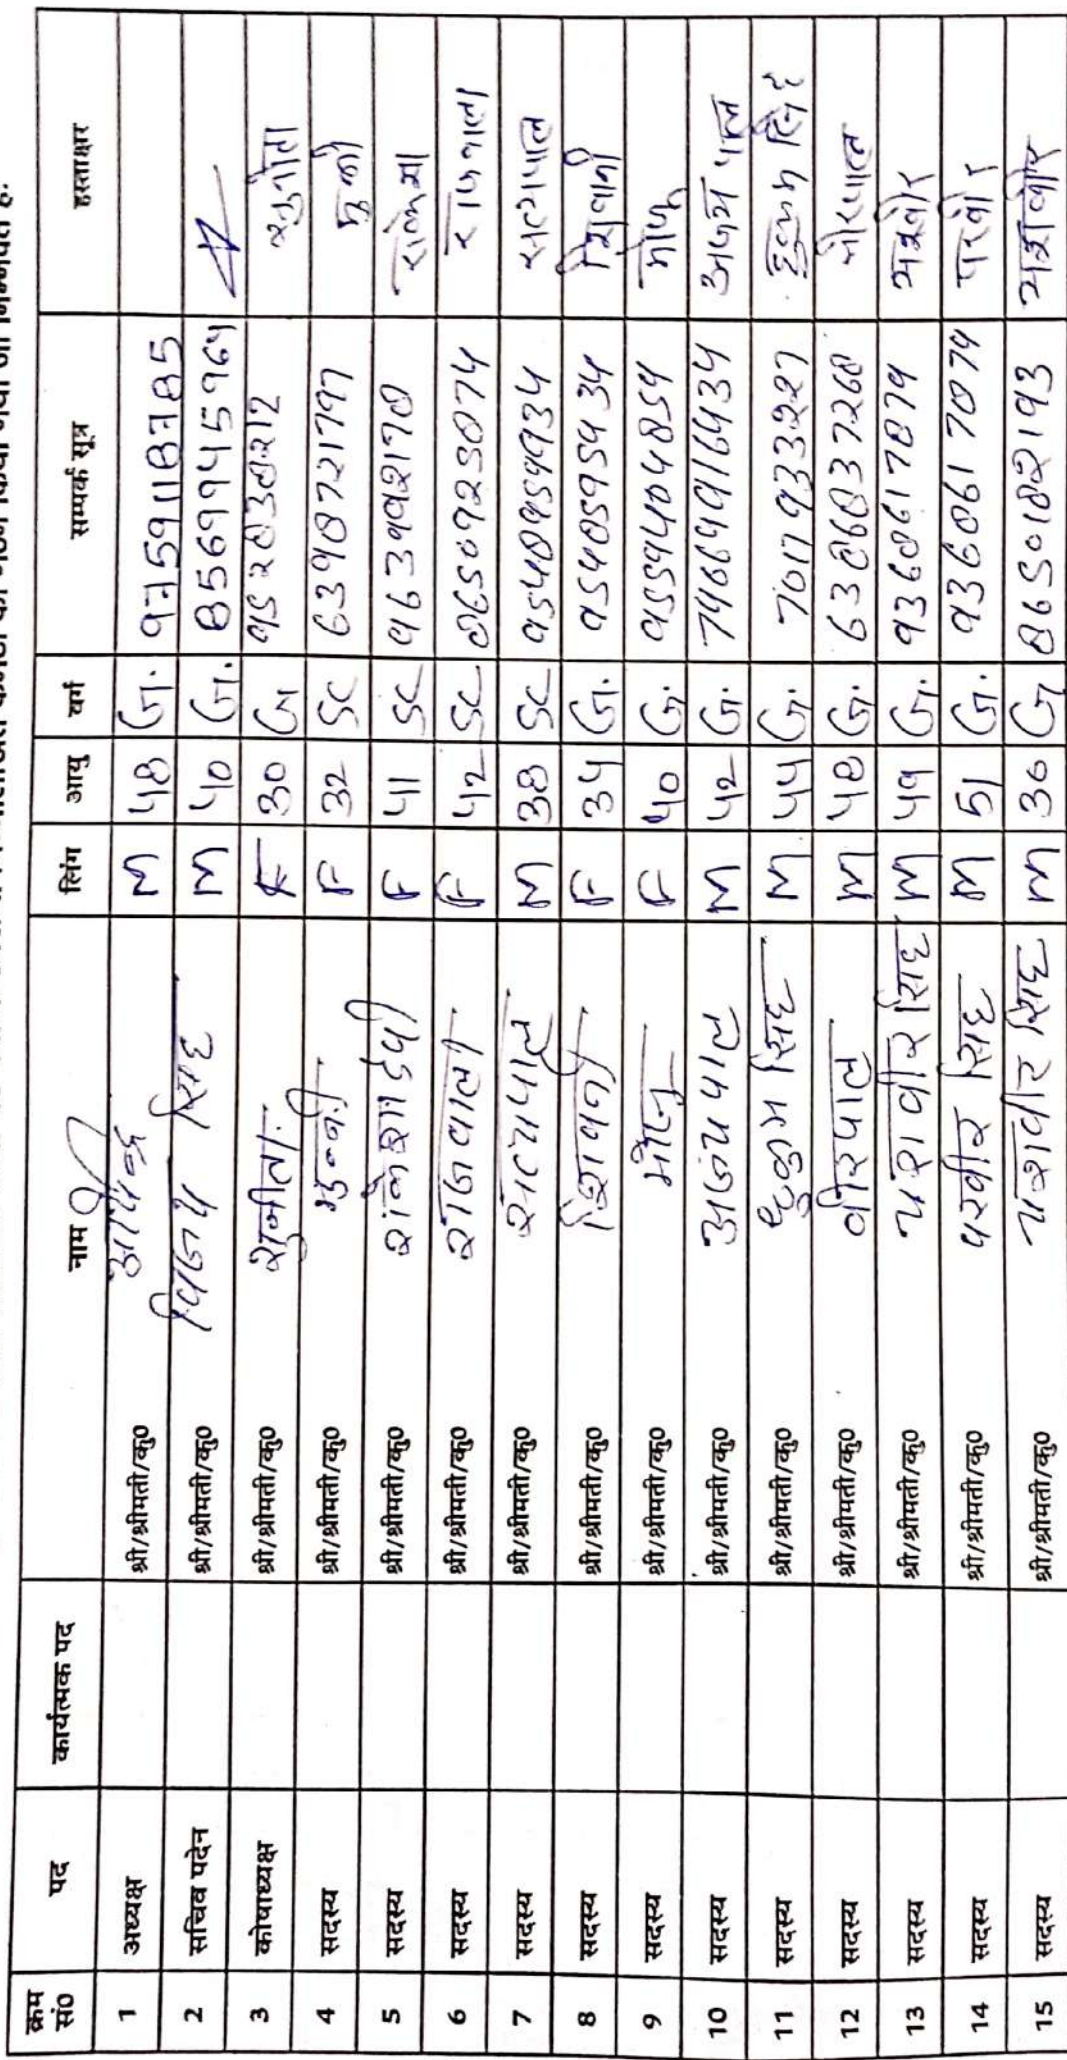 क्रम सं0 पद कार्यत्मक पद नाम लिंग आयु वर्ग सम्पर्क सूत्र हस्ताक्षर
1 अध्यक्ष श्री/श्रीमती/कु0 M 48 G.
2 सचिव पदेन श्री/श्रीमती/कु0 विजय सिंह M 40 G. 8569945964
3 कोषाध्यक्ष श्री/श्रीमती/कु0 सुनीता F 30 G 9528038212 सुनीता
4 सदस्य श्री/श्रीमती/कु0 मुन्नी F 32 SC 6398721797
5 सदस्य श्री/श्रीमती/कु0 राकेश देवी F 41 SC 9639992178
6 सदस्य श्री/श्रीमती/कु0 राजवाला F 42 SC 8650925074
7 सदस्य श्री/श्रीमती/कु0 सत्यपाल M 38 SC 9548959934 सत्यपाल
8 सदस्य श्री/श्रीमती/कु0 शिवानी F 34 G. 9548595934 शिवानी
9 सदस्य श्री/श्रीमती/कु0 F 40 G. 9559404854
10 सदस्य श्री/श्रीमती/कु0 अजयपाल M 42 G. अजय पाल
11 सदस्य श्री/श्रीमती/कु0 हुकम सिंह M 44 G. 7017933227 हुकम सिंह
12 सदस्य श्री/श्रीमती/कु0 वीरपाल M 48 G. 6386037268 वीरपाल
13 सदस्य श्री/श्रीमती/कु0 यशवीर सिंह M 49 G. यशवीर
14 सदस्य श्री/श्रीमती/कु0 परवीर सिंह M 51 G. 9360617074 परवीर
15 सदस्य श्री/श्रीमती/कु0 यशवीर सिंह M 36 G 8650182193 यशवीर